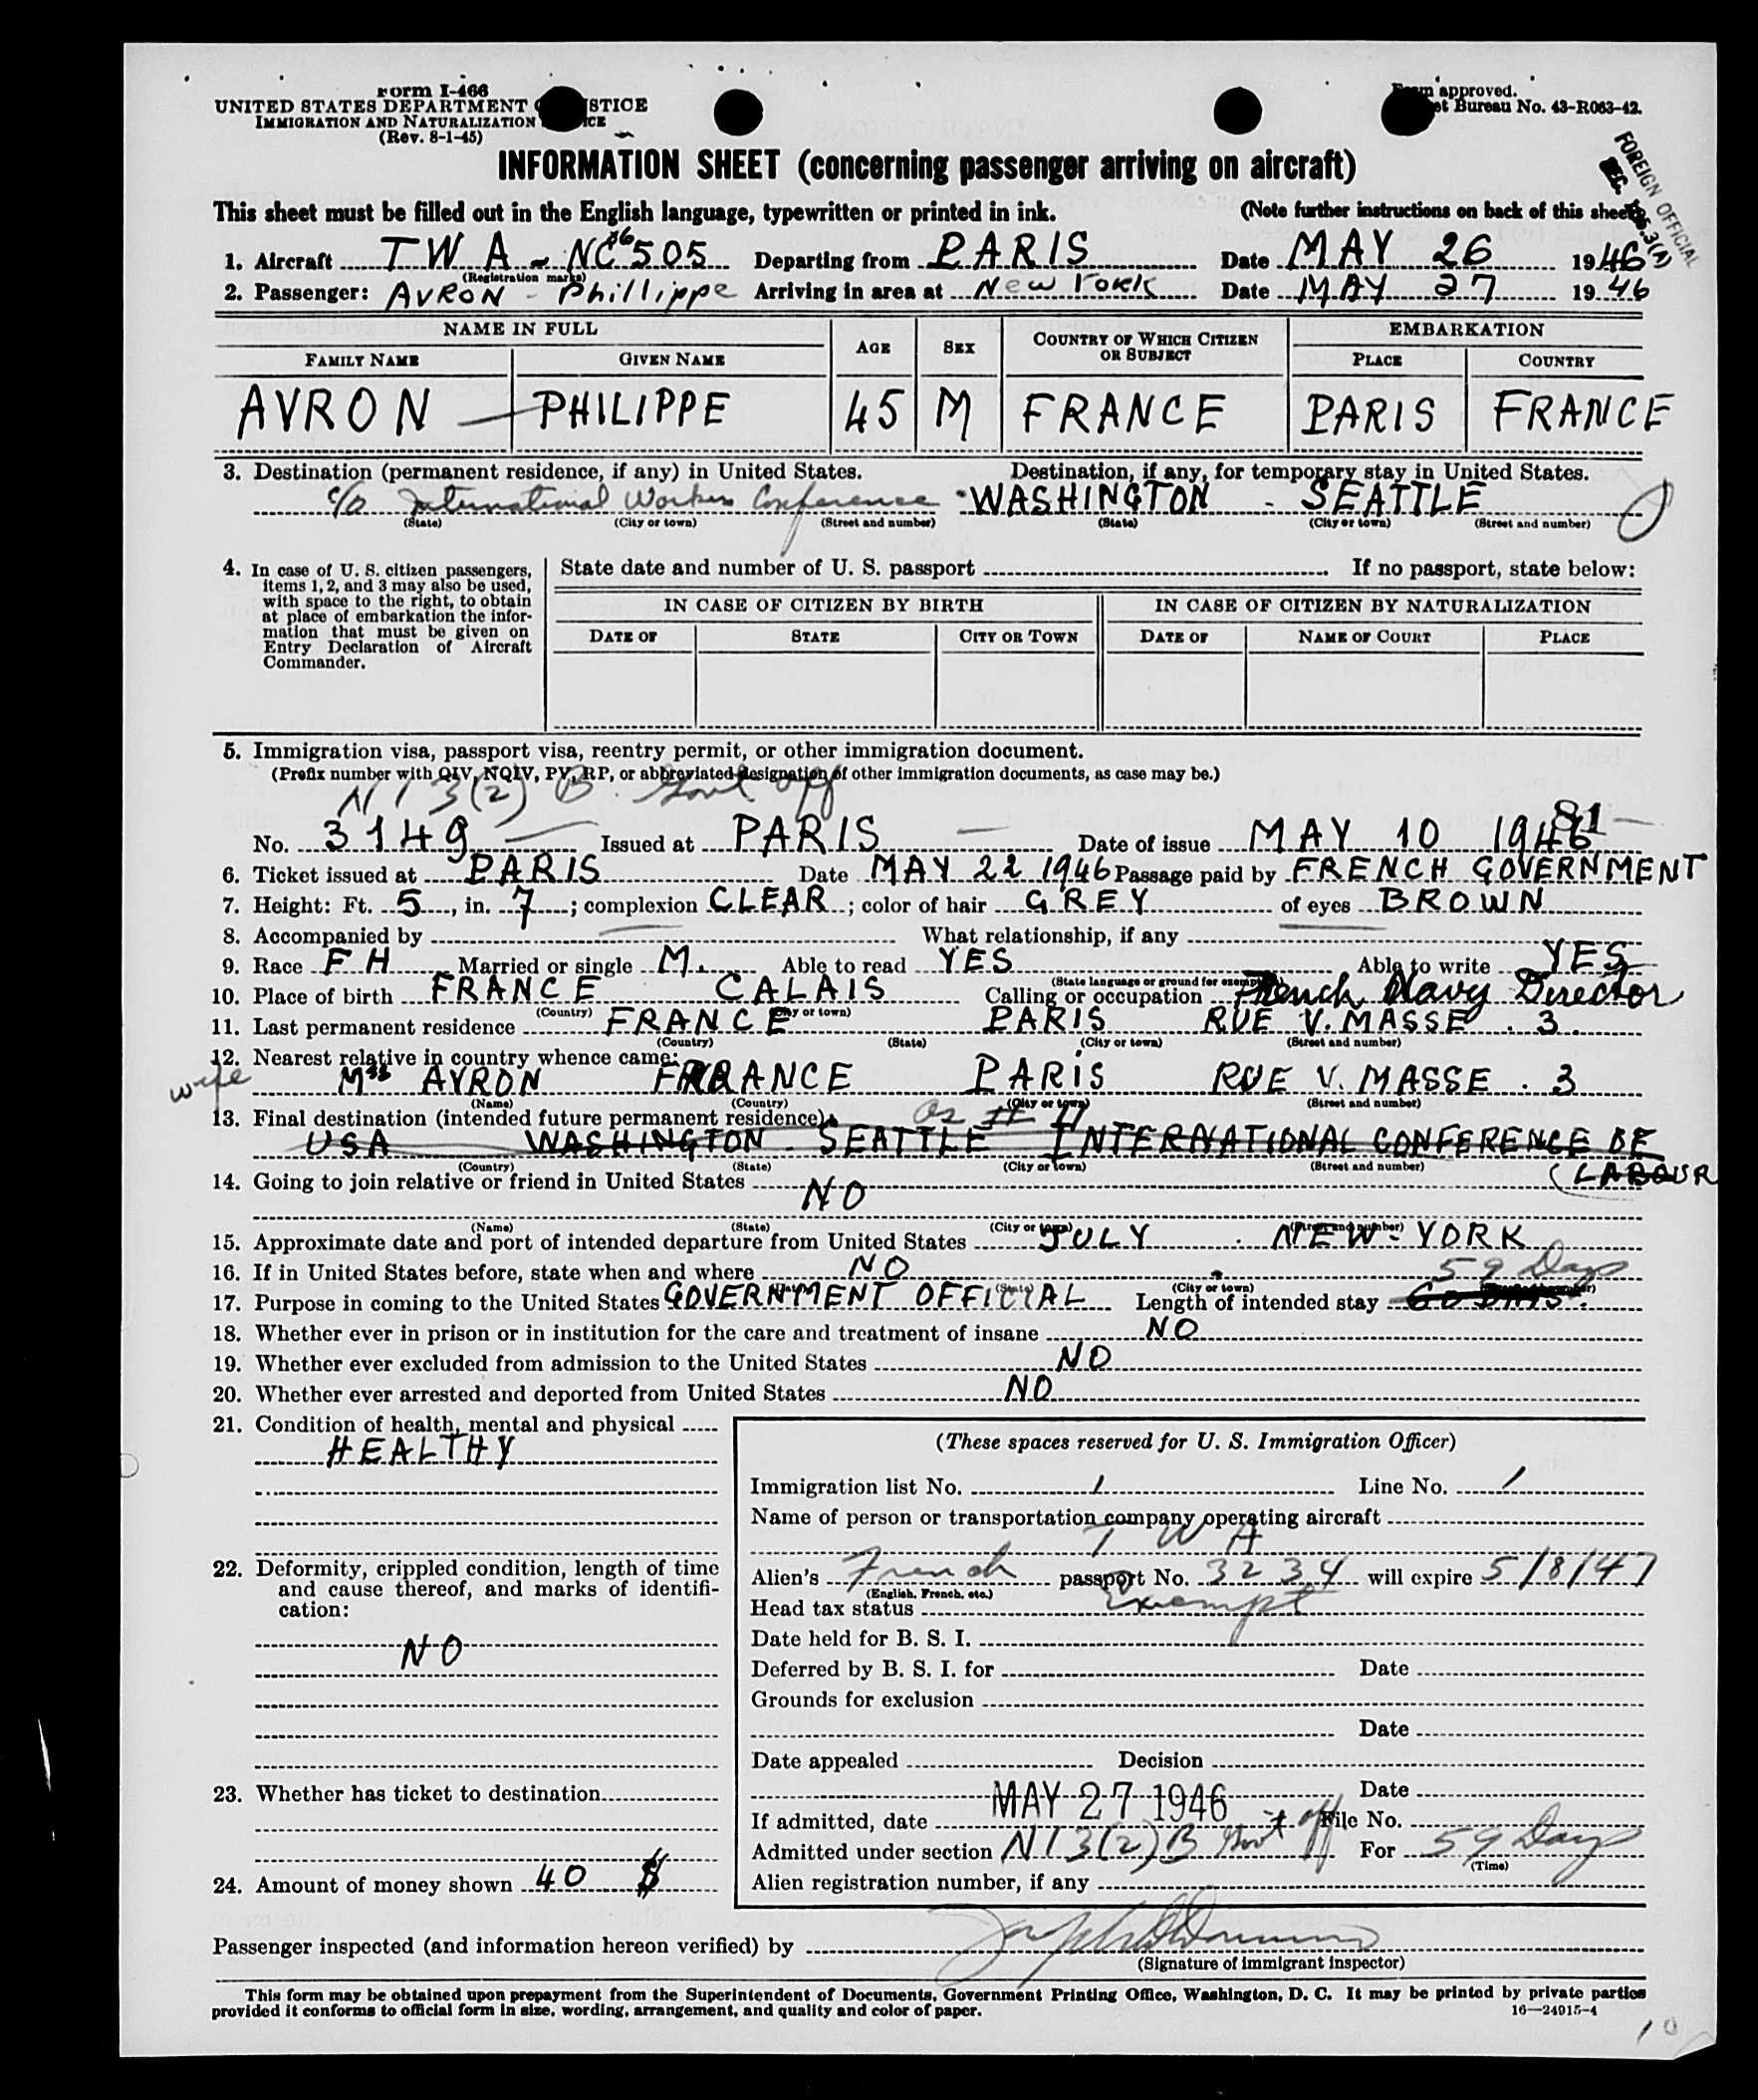 Form I-466
UNITED STATES DEPARTMENT STICE
IMMIGRATION AND NATURALIZATION ICE
(Rev. 8-1-45)
approved.
et Bureau No. 43-R063-42.
FOREIGN OFFICIAL
SEC. 3(A)
INFORMATION SHEET (concerning passenger arriving on aircraft)
This sheet must be filled out in the English language, typewritten or printed in ink. (Note further instructions on back of this sheet
1. Aircraft TWA - NC 86505 Departing from PARIS Date MAY 26 1946
(Registration marks)
2. Passenger: AVRON - Phillippe Arriving in area at New York Date MAY 27 1946
NAME IN FULL AGE SEX COUNTRY OF WHICH CITIZEN OR SUBJECT EMBARKATION
FAMILY NAME GIVEN NAME PLACE COUNTRY
AVRON — PHILIPPE 45 M FRANCE PARIS FRANCE
3. Destination (permanent residence, if any) in United States. Destination, if any, for temporary stay in United States.
c/o International Workers Conference WASHINGTON - SEATTLE
(State) (City or town) (Street and number) (State) (City or town) (Street and number)
4. In case of U. S. citizen passengers, items 1, 2, and 3 may also be used, with space to the right, to obtain at place of embarkation the information that must be given on Entry Declaration of Aircraft Commander.
State date and number of U. S. passport If no passport, state below:
IN CASE OF CITIZEN BY BIRTH IN CASE OF CITIZEN BY NATURALIZATION
DATE OF STATE CITY OR TOWN DATE OF NAME OF COURT PLACE
5. Immigration visa, passport visa, reentry permit, or other immigration document.
(Prefix number with QIV, NQIV, PV, RP, or abbreviated designation of other immigration documents, as case may be.)
NI 3(2) B. Govt off
81
No. 3149 Issued at PARIS Date of issue MAY 10 1946
6. Ticket issued at PARIS Date MAY 22 1946 Passage paid by FRENCH GOVERNMENT
7. Height: Ft. 5, in. 7; complexion CLEAR; color of hair GREY of eyes BROWN
8. Accompanied by What relationship, if any
9. Race FH Married or single M. Able to read YES Able to write YES
(State language or ground for exemption)
10. Place of birth FRANCE CALAIS Calling or occupation French Navy Director
(Country) (City or town)
11. Last permanent residence FRANCE PARIS RUE V. MASSE . 3.
(Country) (State) (City or town) (Street and number)
12. Nearest relative in country whence came:
wife Mss AVRON FRANCE PARIS RUE V. MASSE . 3
(Name) (Country) (City or town) (Street and number)
13. Final destination (intended future permanent residence)
as #
USA WASHINGTON - SEATTLE INTERNATIONAL CONFERENCE BE
(LABOUR
(Country) (State) (City or town) (Street and number)
14. Going to join relative or friend in United States
NO
(Name) (State) (City or town) (Street and number)
15. Approximate date and port of intended departure from United States JULY . NEW-YORK
16. If in United States before, state when and where NO 59 Days
(State) (City or town)
17. Purpose in coming to the United States GOVERNMENT OFFICIAL Length of intended stay 60 DAYS.
18. Whether ever in prison or in institution for the care and treatment of insane NO
19. Whether ever excluded from admission to the United States NO
20. Whether ever arrested and deported from United States NO
21. Condition of health, mental and physical
HEALTHY
(These spaces reserved for U. S. Immigration Officer)
Immigration list No. 1 Line No. 1
Name of person or transportation company operating aircraft
TWA
22. Deformity, crippled condition, length of time and cause thereof, and marks of identification:
NO
Alien's French passport No. 3234 will expire 5/8/47
(English, French, etc.)
Head tax status Exempt
Date held for B. S. I.
Deferred by B. S. I. for Date
Grounds for exclusion
Date
Date appealed Decision
23. Whether has ticket to destination
Date
If admitted, date MAY 27 1946 File No.
Admitted under section NI 3(2) B Govt off For 59 Days
(Time)
24. Amount of money shown 40 $
Alien registration number, if any
Passenger inspected (and information hereon verified) by
(Signature of immigrant inspector)
This form may be obtained upon prepayment from the Superintendent of Documents, Government Printing Office, Washington, D. C. It may be printed by private parties
provided it conforms to official form in size, wording, arrangement, and quality and color of paper. 16—24915-4
10